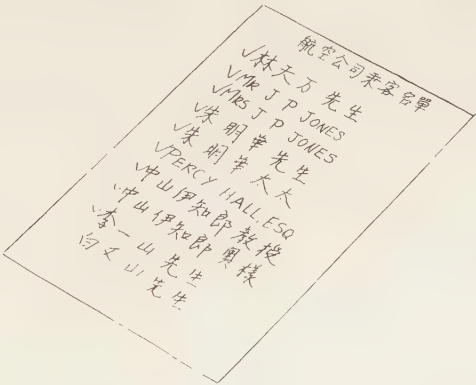 航空公司乘客名單
✓林天万先生
✓MR J P JONES
✓MRS J P JONES
✓朱明華先生
✓朱明華太太
✓PERCY HALL, ESQ
✓中山伊知郎教授
✓中山伊知郎奧様
✓李一山先生
向又山先生